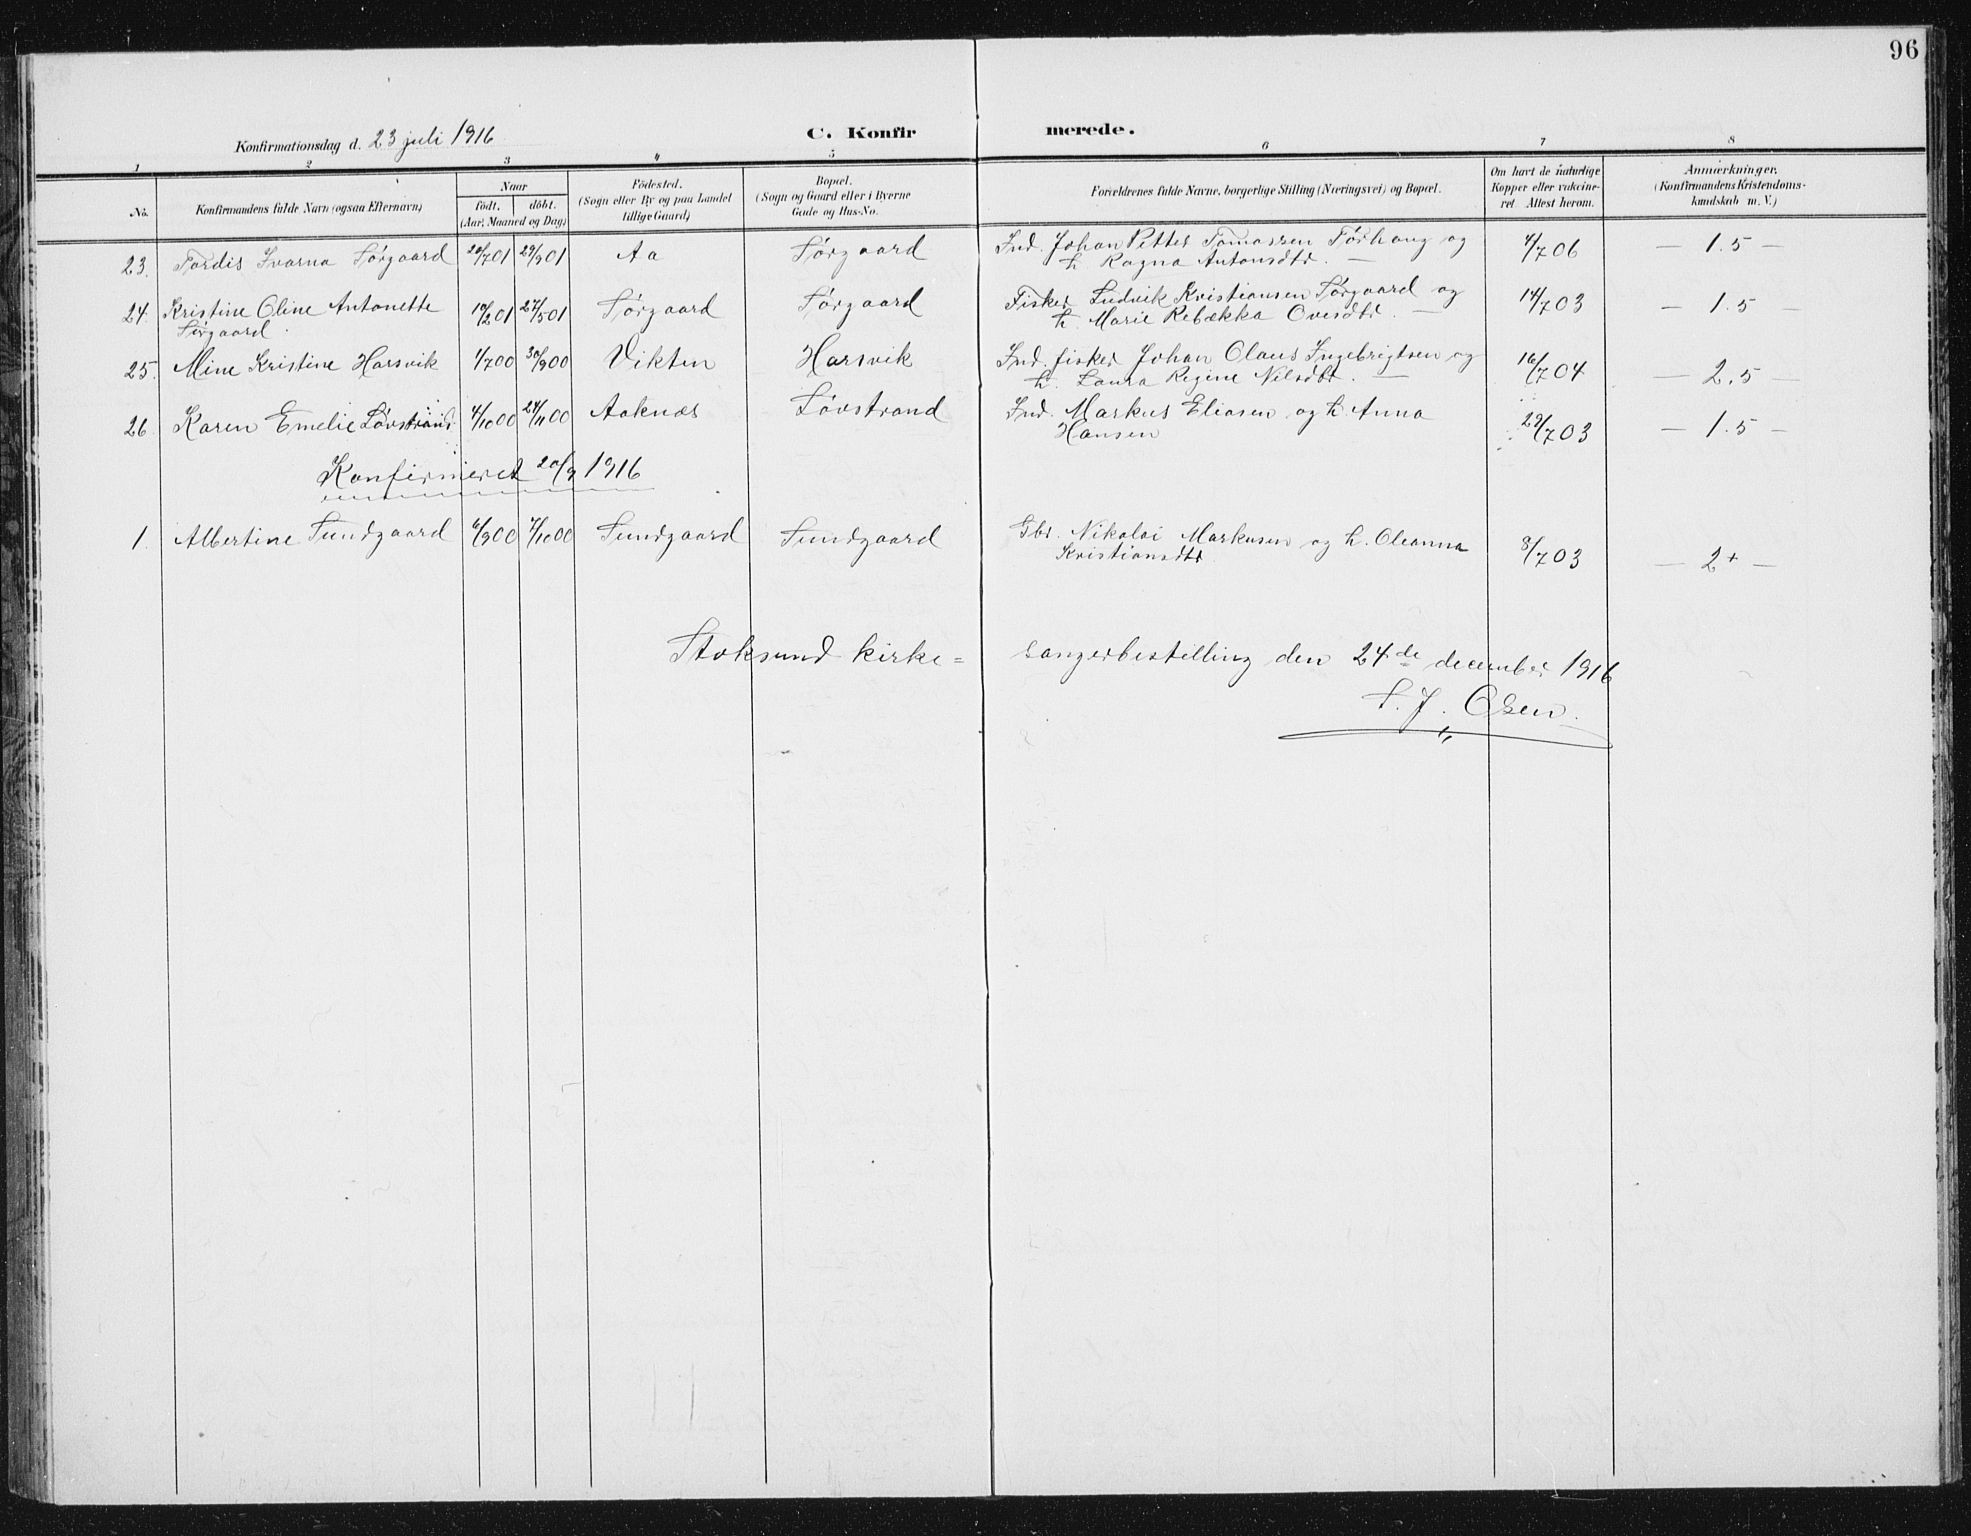 96
Konfirmationsdag d. 23 juli 1916
C. Konfirmerede.
1 2 3 4 5 6 7 8
No. Konfirmandens fulde Navn (ogsaa Efternavn) Naar født. døbt. (Aar, Maaned og Dag) Fødested. (Sogn eller By og paa Landet tillige Gaard) Bopæl. (Sogn og Gaard eller i Byerne Gade og Hus-No. Forældrenes fulde Navne, borgerlige Stilling (Næringsvei) og Bopæl. Om havt de naturlige Kopper eller vakcineret. Attest herom. Anmærkninger. (Konfirmandens Kristendomskundskab m. V.)
23. Tordis Ivarna Sørgaard 20/7 01 29/9 01 Aa Sørgaard Ind. Johan Petter Tomassen Tørhaug og
h. Ragna Antonsdtr. — 4/7 06 — 1.5 —
24. Kristine Oline Antonette 10/2 01 27/5 01 Sørgaard Sørgaard Fisker Ludvik Kristiansen Sørgaard og
Sørgaard h. Marie Rebækka Ovesdtr. — 14/7 03 — 1.5 —
25. Mine Kristine Harsvik 1/7 00 30/9 00 Vikten Harsvik Ind. fisker Johan Olaus Ingebrigtsen og
h. Laura Regine Nilsdtr. — 16/7 04 — 2.5 —
26. Karen Emelie Løvstrand 4/10 00 24/11 00 Aaknæs Løvstrand Ind. Markus Eliasen og h. Anna
Hansen 29/7 03 — 1.5 —
Konfirmeret 20/9 1916
1. Albertine Sundgaard 6/9 00 7/10 00 Sundgaard Sundgaard Gbr. Nikolai Markusen og h. Oleanna
Kristiansdtr 8/7 03 — 2+ —
Stoksund kirke= sangerbestilling den 24de december 1916
S. J. Osen.